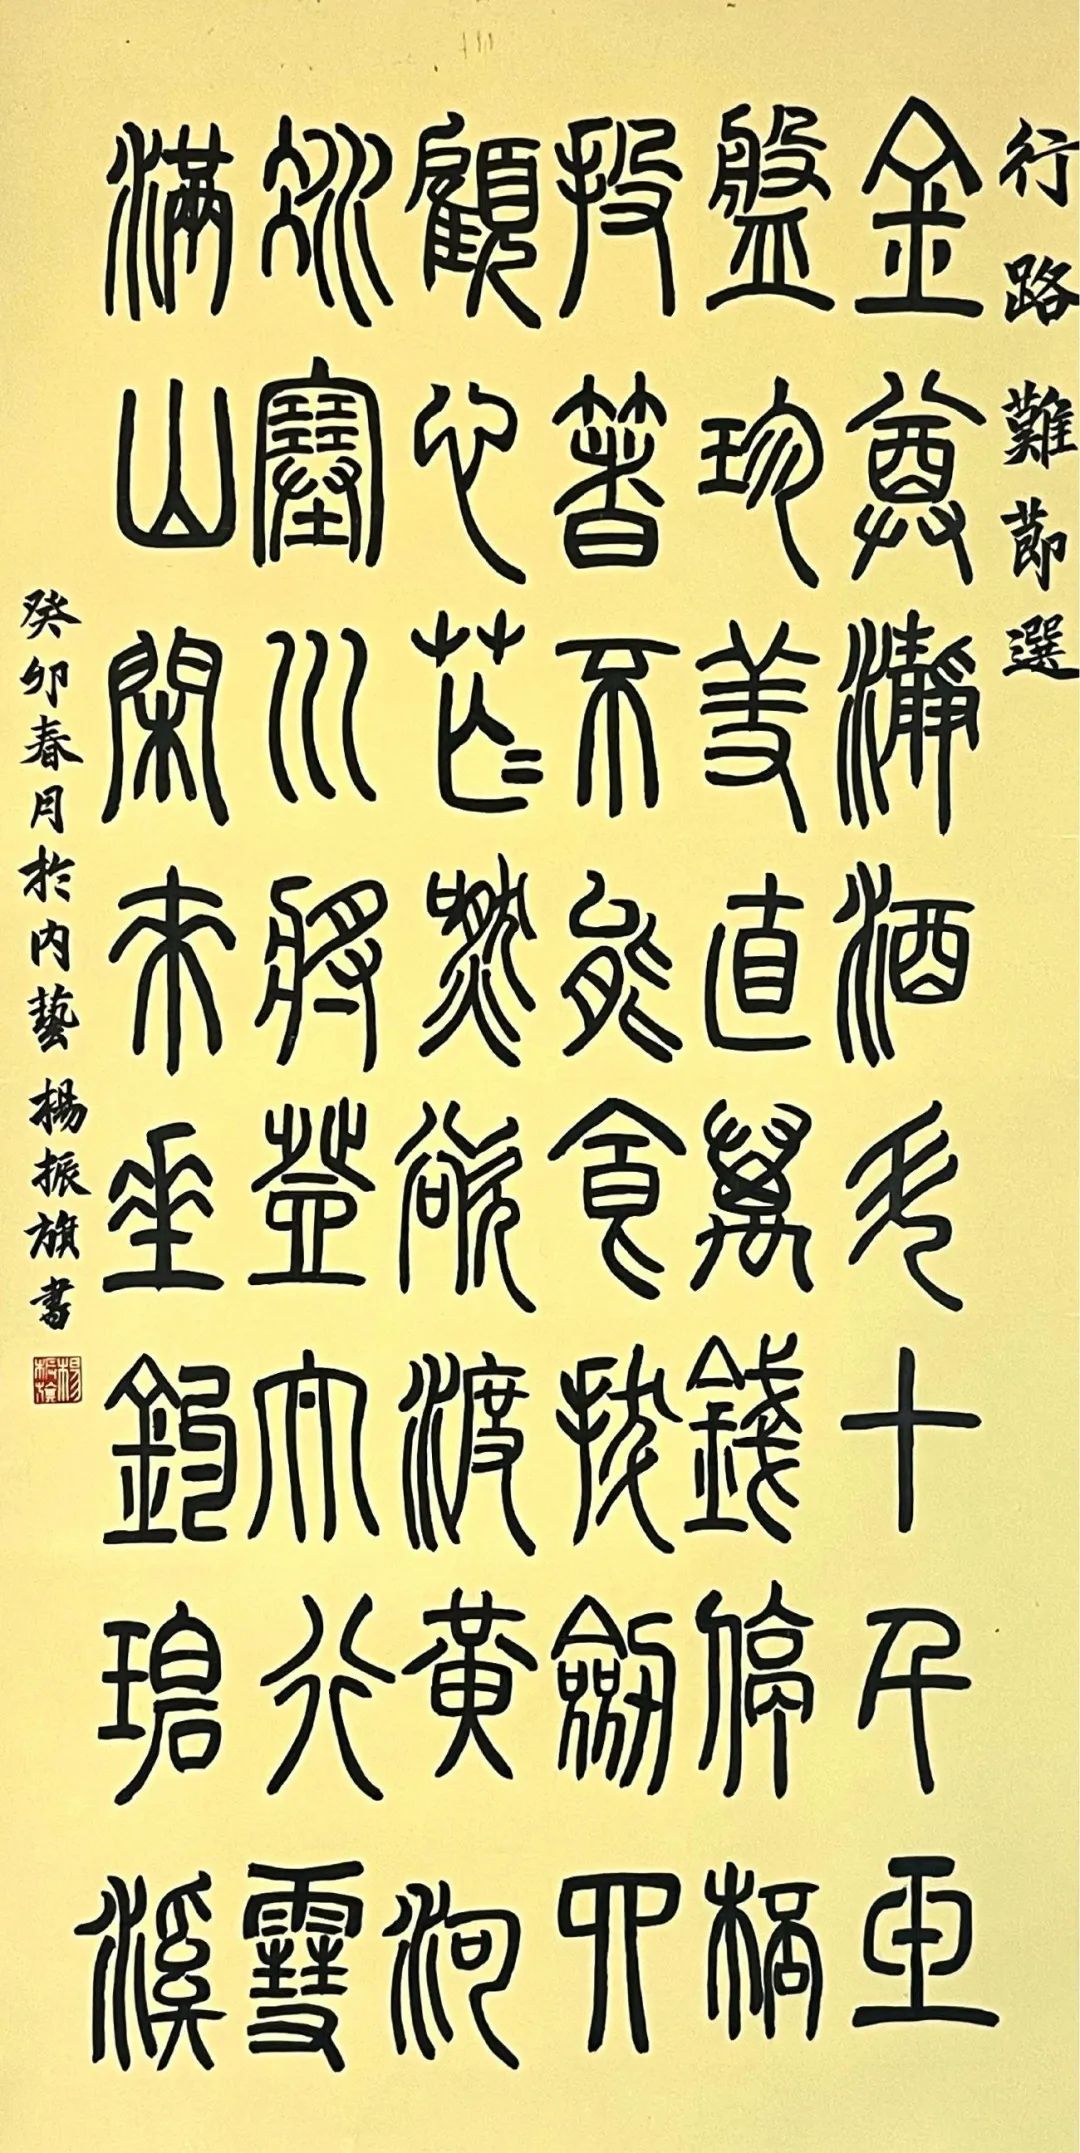 行路難節選
金尊瀞酒斗十千玉
盤珍羞直萬錢停桮
投箸不能食拔劍四
顧心茫〻然欲渡黃河
冰塞川將登太行雪
滿山閑來坐釣碧溪
癸卯春月於內藝楊振旗書
楊振旗